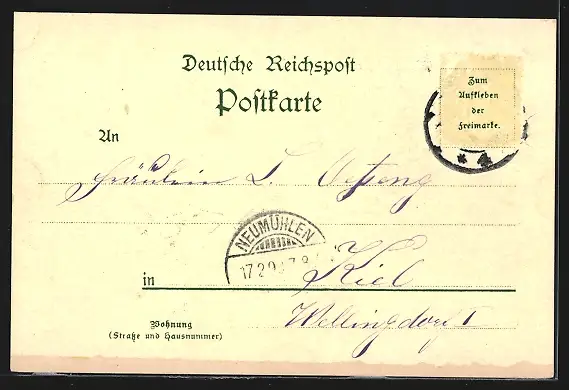 Deutsche Reichspost
Postkarte
Zum
Aufkleben
der
Freimarke.
An
Fräulein L.
NEUMÜHLEN
17.2.9
in Kiel
Wohnung
(Straße und Hausnummer)
Wellingdorf